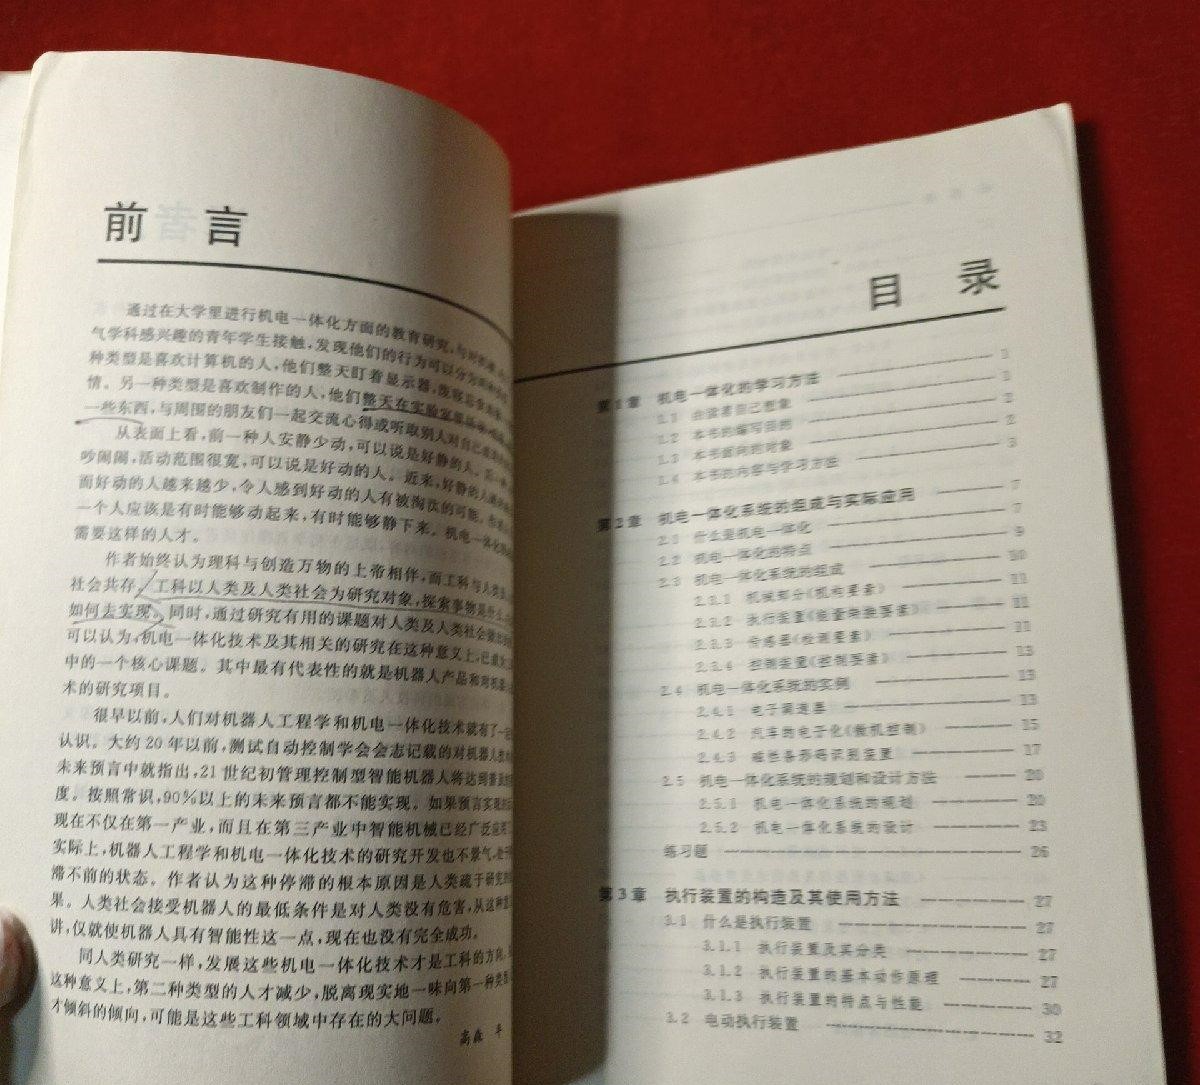 前言
通过在大学里进行机电一体化方面的教育研究,与对
气学科感兴趣的青年学生接触,发现他们的行为可以分为
种类型是喜欢计算机的人,他们整天盯着显示器,
情。另一种类型是喜欢制作的人,他们整天在实验室
一些东西,与周围的朋友们一起交流心得或听取别人对自己
从表面上看,前一种人安静少动,可以说是好静的人。
吵闹闹,活动范围很宽,可以说是好动的人。近来,好静的人
而好动的人越来越少,令人感到好动的人有被淘汰的可能。
一个人应该是有时能够动起来,有时能够静下来。机电一体化
需要这样的人才。
作者始终认为理科与创造万物的上帝相伴,而工科与人类
社会共存。工科以人类及人类社会为研究对象,探索事物是什么
如何去实现。同时,通过研究有用的课题对人类及人类社会做出
可以认为,机电一体化技术及其相关的研究在这种意义上,已成为
中的一个核心课题。其中最有代表性的就是机器人产品和对机器
术的研究项目。
很早以前,人们对机器人工程学和机电一体化技术就有了一
认识。大约20年以前,测试自动控制学会会志记载的对机器人技
未来预言中就指出,21世纪初管理控制型智能机器人将达到普及
度。按照常识,90%以上的未来预言都不能实现。如果预言实现
现在不仅在第一产业,而且在第三产业中智能机械已经广泛应用
实际上,机器人工程学和机电一体化技术的研究开发也不景气,处于
滞不前的状态。作者认为这种停滞的根本原因是人类疏于研究的
果。人类社会接受机器人的最低条件是对人类没有危害,从这种意
讲,仅就使机器人具有智能性这一点,现在也没有完全成功。
同人类研究一样,发展这些机电一体化技术才是工科的方向。
这种意义上,第二种类型的人才减少,脱离现实地一味向第一种类型
才倾斜的倾向,可能是这些工科领域中存在的大问题。
高森 年
目录
第1章 机电一体化的学习方法 1
1.1 由读者自己想象 1
1.2 本书的编写目的 2
1.3 本书面向的对象 2
1.4 本书的内容与学习方法 3
第2章 机电一体化系统的组成与实际应用 7
2.1 什么是机电一体化 7
2.2 机电一体化的特点 9
2.3 机电一体化系统的组成 10
2.3.1 机械部分(机构要素) 11
2.3.2 执行装置(能量转换要素) 11
2.3.3 传感器(检测要素) 11
2.3.4 控制装置(控制要素) 13
2.4 机电一体化系统的实例 13
2.4.1 电子调速器 13
2.4.2 汽车的电子化(微机控制) 15
2.4.3 磁性条形码识别装置 17
2.5 机电一体化系统的规划和设计方法 20
2.5.1 机电一体化系统的规划 20
2.5.2 机电一体化系统的设计 23
练习题 26
第3章 执行装置的构造及其使用方法 27
3.1 什么是执行装置 27
3.1.1 执行装置及其分类 27
3.1.2 执行装置的基本动作原理 27
3.1.3 执行装置的特点与性能 30
3.2 电动执行装置 32